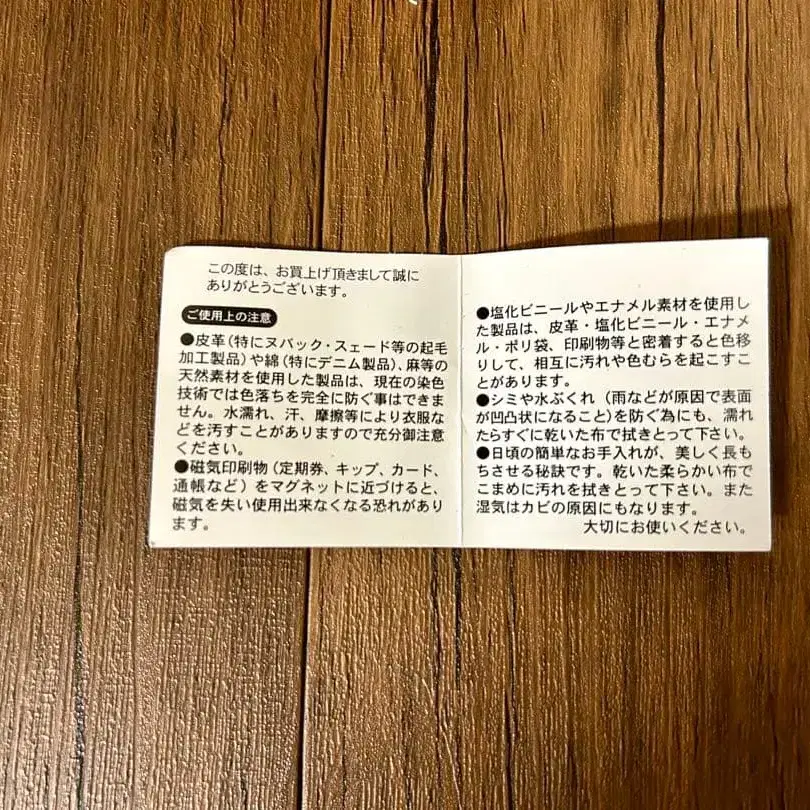 この度は、お買上げ頂きまして誠に
ありがとうございます。
ご使用上の注意
●皮革(特にヌバック・スェード等の起毛
加工製品)や綿(特にデニム製品)、麻等の
天然素材を使用した製品は、現在の染色
技術では色落ちを完全に防ぐ事はできま
せん。水濡れ、汗、摩擦等により衣服な
どを汚すことがありますので充分御注意
ください。
●磁気印刷物(定期券、キップ、カード、
通帳など)をマグネットに近づけると、
磁気を失い使用出来なくなる恐れがあり
ます。
●塩化ビニールやエナメル素材を使用し
た製品は、皮革・塩化ビニール・エナメ
ル・ポリ袋、印刷物等と密着すると色移
りして、相互に汚れや色むらを起こすこ
とがあります。
●シミや水ぶくれ(雨などが原因で表面
が凹凸状になること)を防ぐ為にも、濡れ
たらすぐに乾いた布で拭きとって下さい。
●日頃の簡単なお手入れが、美しく長も
ちさせる秘訣です。乾いた柔らかい布で
こまめに汚れを拭きとって下さい。また
湿気はカビの原因にもなります。
大切にお使いください。